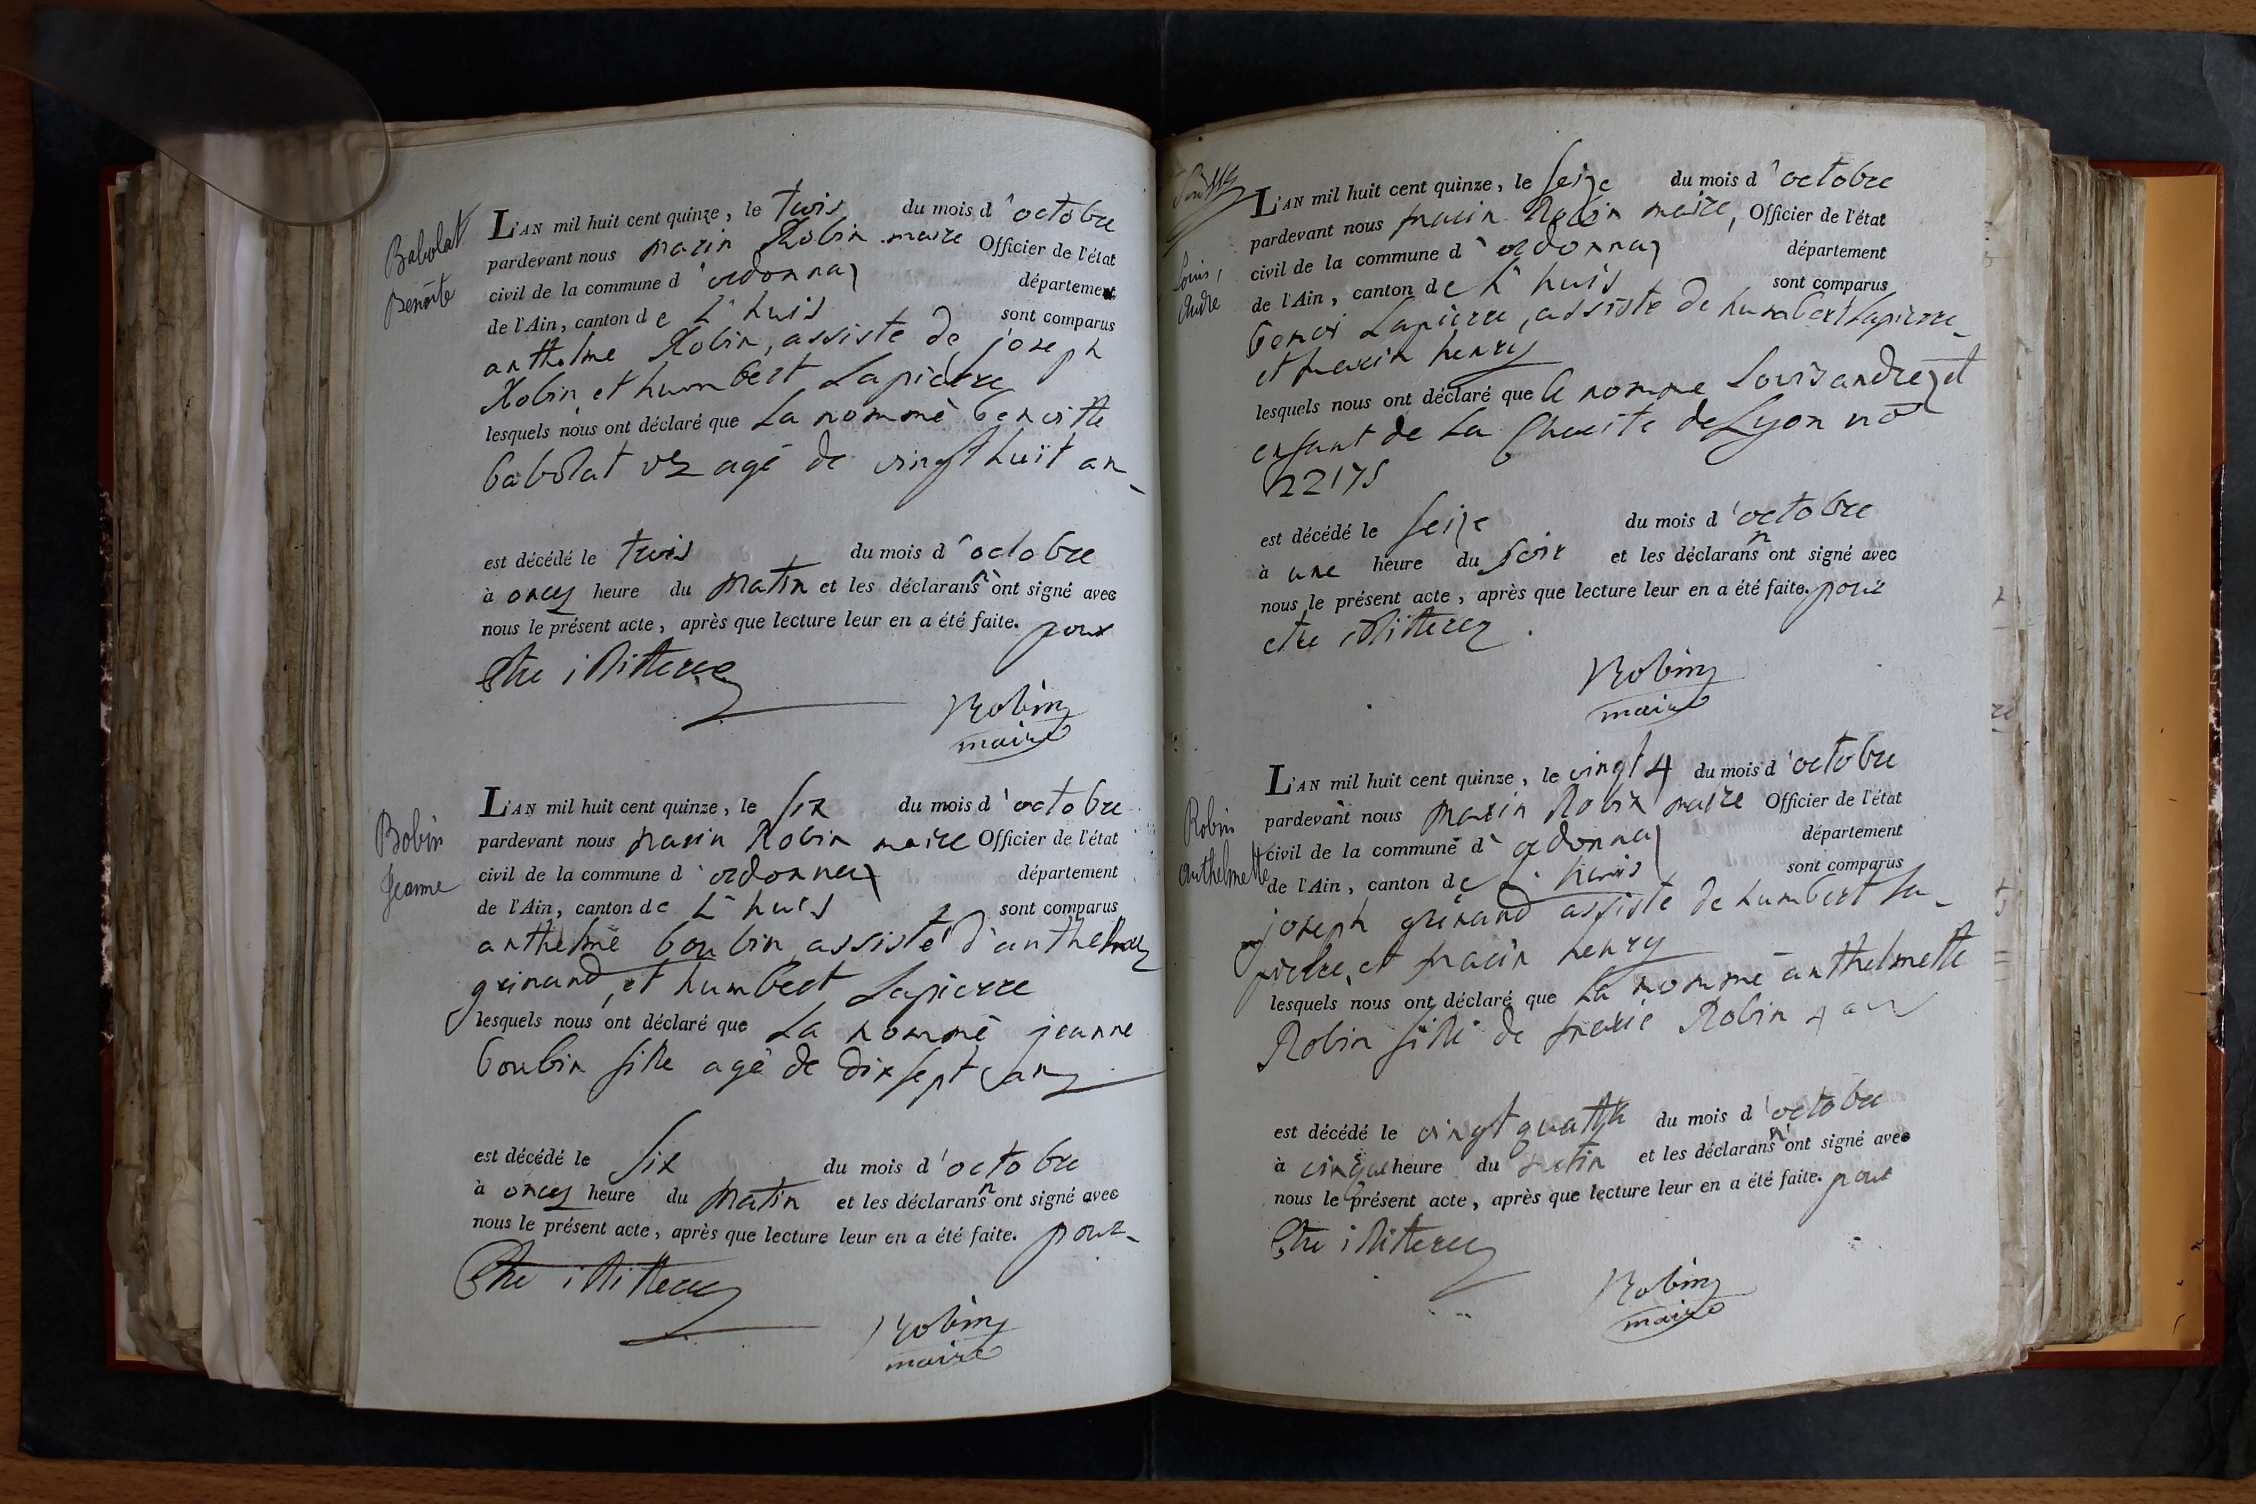 Babolat
Benoite
L'AN mil huit cent quinze, le trois du mois d'octobre
pardevant nous marin Robin maire Officier de l'état
civil de la commune d'ordonnaz département
de l'Ain, canton de L'huis sont comparus
anthelme Robin, assiste de joseph
Robin et humbert Lapierre
lesquels nous ont déclaré que La nommé benoitte
babolat vez agé de vingt huit an
est décédé le trois du mois d'octobre
à onces heure du matin et les déclarans n'ont signé avec
nous le présent acte, après que lecture leur en a été faite. pour
Etre illiterez
Robin
maire
Bobin
Jeanne
L'AN mil huit cent quinze, le six du mois d'octobre
pardevant nous marin Robin maire Officier de l'état
civil de la commune d'ordonnaz département
de l'Ain, canton de L'huis sont comparus
anthelme boubin assisté d'anthelme
grinand, et humbert Lapierre
lesquels nous ont déclaré que La nommé jeanne
boubin fille agé de dix sept an
est décédé le six du mois d'octobre
à onces heure du matin et les déclarans n'ont signé avec
nous le présent acte, après que lecture leur en a été faite. pour
Etre illiterez
Robin
maire
Louis,
Andre
L'AN mil huit cent quinze, le seize du mois d'octobre
pardevant nous marin Robin maire, Officier de l'état
civil de la commune d'ordonnaz département
de l'Ain, canton de L'huis sont comparus
benoi Lapierre, assisté de humbert Lapierre
et marin henry
lesquels nous ont déclaré que le nomme Louis andre
enfant de La Charite de Lyon no
22175
est décédé le seize du mois d'octobre
à une heure du soir et les déclarans n'ont signé avec
nous le présent acte, après que lecture leur en a été faite. pour
etre illiterez
Robin
maire
Robin
Anthelmette
L'AN mil huit cent quinze, le vingt 4 du mois d'octobre
pardevant nous marin Robin maire Officier de l'état
civil de la commune d'ordonnaz département
de l'Ain, canton de L'huis sont comparus
joseph grinand assisté de humbert La
pierre, et marin henry
lesquels nous ont déclaré que La nommé anthelmette
Robin fille de Robin 4 an
est décédé le vingt quattre du mois d'octobre
à cinque heure du matin et les déclarans n'ont signé avec
nous le présent acte, après que lecture leur en a été faite. pour
Etre illiterez
Robin
maire